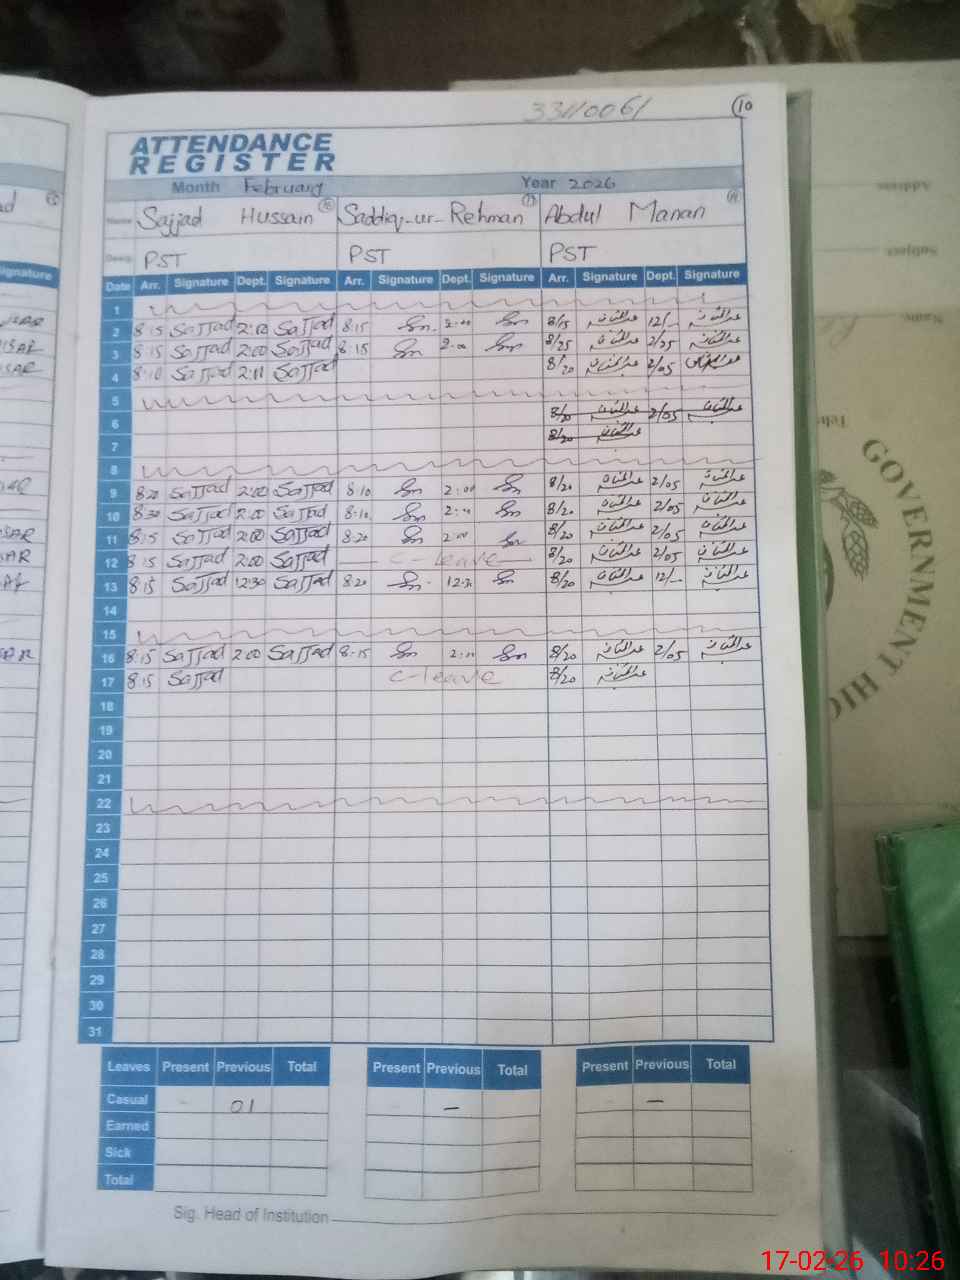 33110061 10
ATTENDANCE
REGISTER
Month February Year 2026
Name Sajjad Hussain Saddiq-ur-Rehman Abdul Manan
Desig: PST PST PST
Date Arr. Signature Dept. Signature Arr. Signature Dept. Signature Arr. Signature Dept. Signature
1
2 8:15 Sajjad 2:00 Sajjad 8:15 2:00 8/15 عبدالمنان 12/- عبدالمنان
3 8:15 Sajjad 2:00 Sajjad 8:15 2:00 8/25 عبدالمنان 2/05 عبدالمنان
4 8:10 Sajjad Sajjad 8/20 عبدالمنان 2/05
5
6 8/20 عبدالمنان 2/05 عبدالمنان
7 8/20 عبدالمنان
8
9 8:20 Sajjad 2:00 Sajjad 8:10 2:00 8/20 عبدالمنان 2/05 عبدالمنان
10 8:30 Sajjad 2:00 Sajjad 8:10 2:00 8/20 عبدالمنان 2/05 عبدالمنان
11 8:15 Sajjad 2:00 Sajjad 8:20 2:00 8/20 عبدالمنان 2/05 عبدالمنان
12 8:15 Sajjad 2:00 Sajjad C-leave 8/20 عبدالمنان 2/05 عبدالمنان
13 8:15 Sajjad 12:30 Sajjad 8:20 12:30 8/20 عبدالمنان 12/- عبدالمنان
14
15
16 8:15 Sajjad 2:00 Sajjad 8:15 2:00 8/20 عبدالمنان 2/05 عبدالمنان
17 8:15 Sajjad C-leave 8/20 عبدالمنان
18
19
20
21
22
23
24
25
26
27
28
29
30
31
Leaves Present Previous Total Present Previous Total Present Previous Total
Casual - 01 - - - -
Earned
Sick
Total
Sig. Head of Institution
GOVERNMENT HIG
17-02-26 10:26